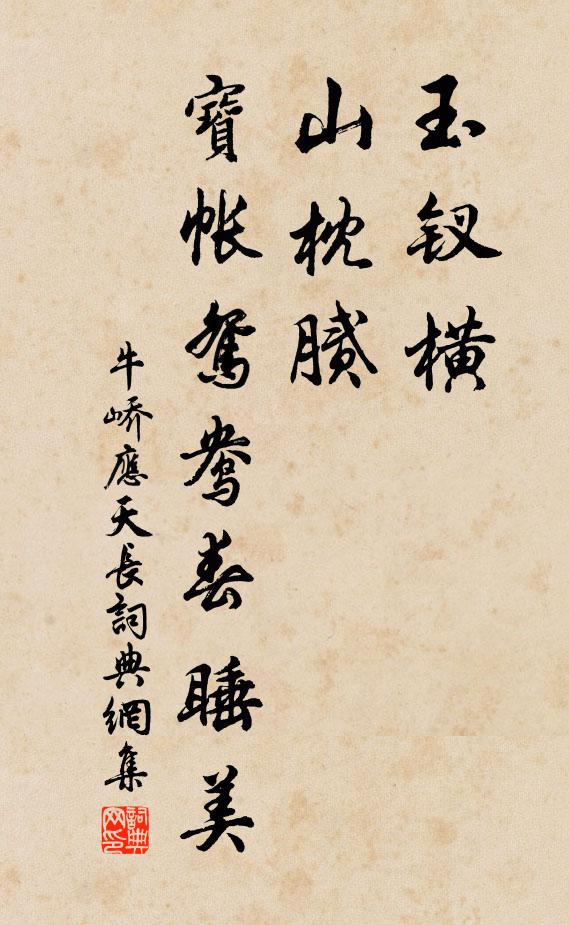 玉钗橫
山枕膩
寶帳鴛鴦春睡美
牛嶠應天長詞典網集
詞典网印